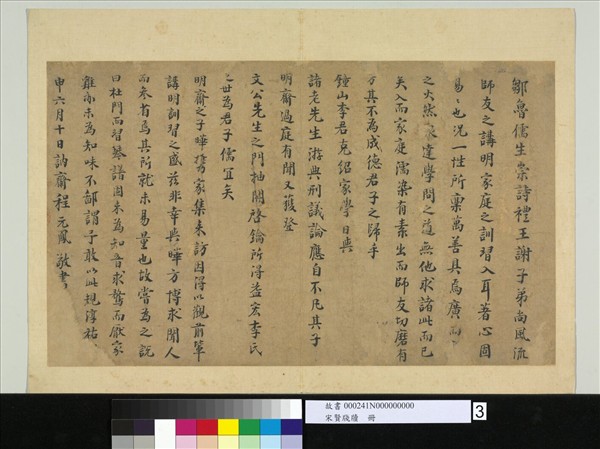 鄒魯儒生崇詩禮王謝子弟尚風流
師友之講明家庭之訓習入耳著心固
易易也況一性所稟萬善具焉廣而
之火然泉達學問之道無他求諸此而已
矣入而家庭濡染有素出而師友切磨有
方其不為成德君子之歸乎
鐘山李君克紹家學日與
諸老先生游與刑議論應自不凡其子
明齋過庭有聞又獲登
文公先生之門抽關啓鑰所得益宏李氏
之世為君子儒宜矣
明齋之子曄攜家集來訪因得以觀前輩
講明訓習之盛茲非幸與曄方博求聞人
而來首焉其所就未易量也故嘗為之説
曰杜門而習琴譜固未為知音求鶩而厭家
雞亦未為知味不鄙謂予敢以此規淳祐
申六月十日訥齋程元鳳敬書
故書 000241N000000000
宋賢牋牘 冊
3